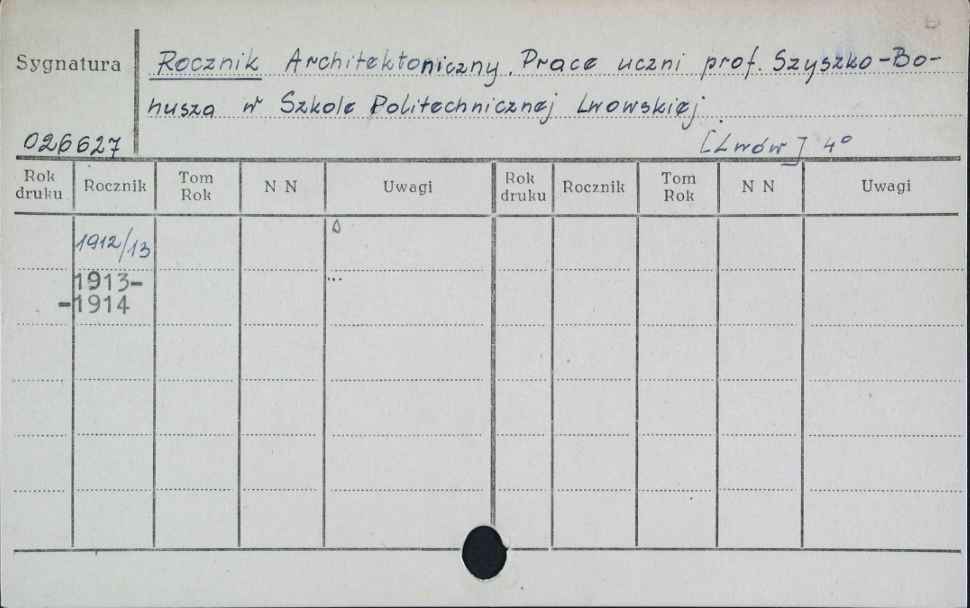 Sygnatura
Rocznik Architektoniczny. Prace uczni prof. Szyszko-Bo-
husza w Szkole Politechnicznej Lwowskiej.
026627
[Lwów] 4°
Rok druku Rocznik Tom Rok N N Uwagi Rok druku Rocznik Tom Rok N N Uwagi
1912/13
1913-
-1914